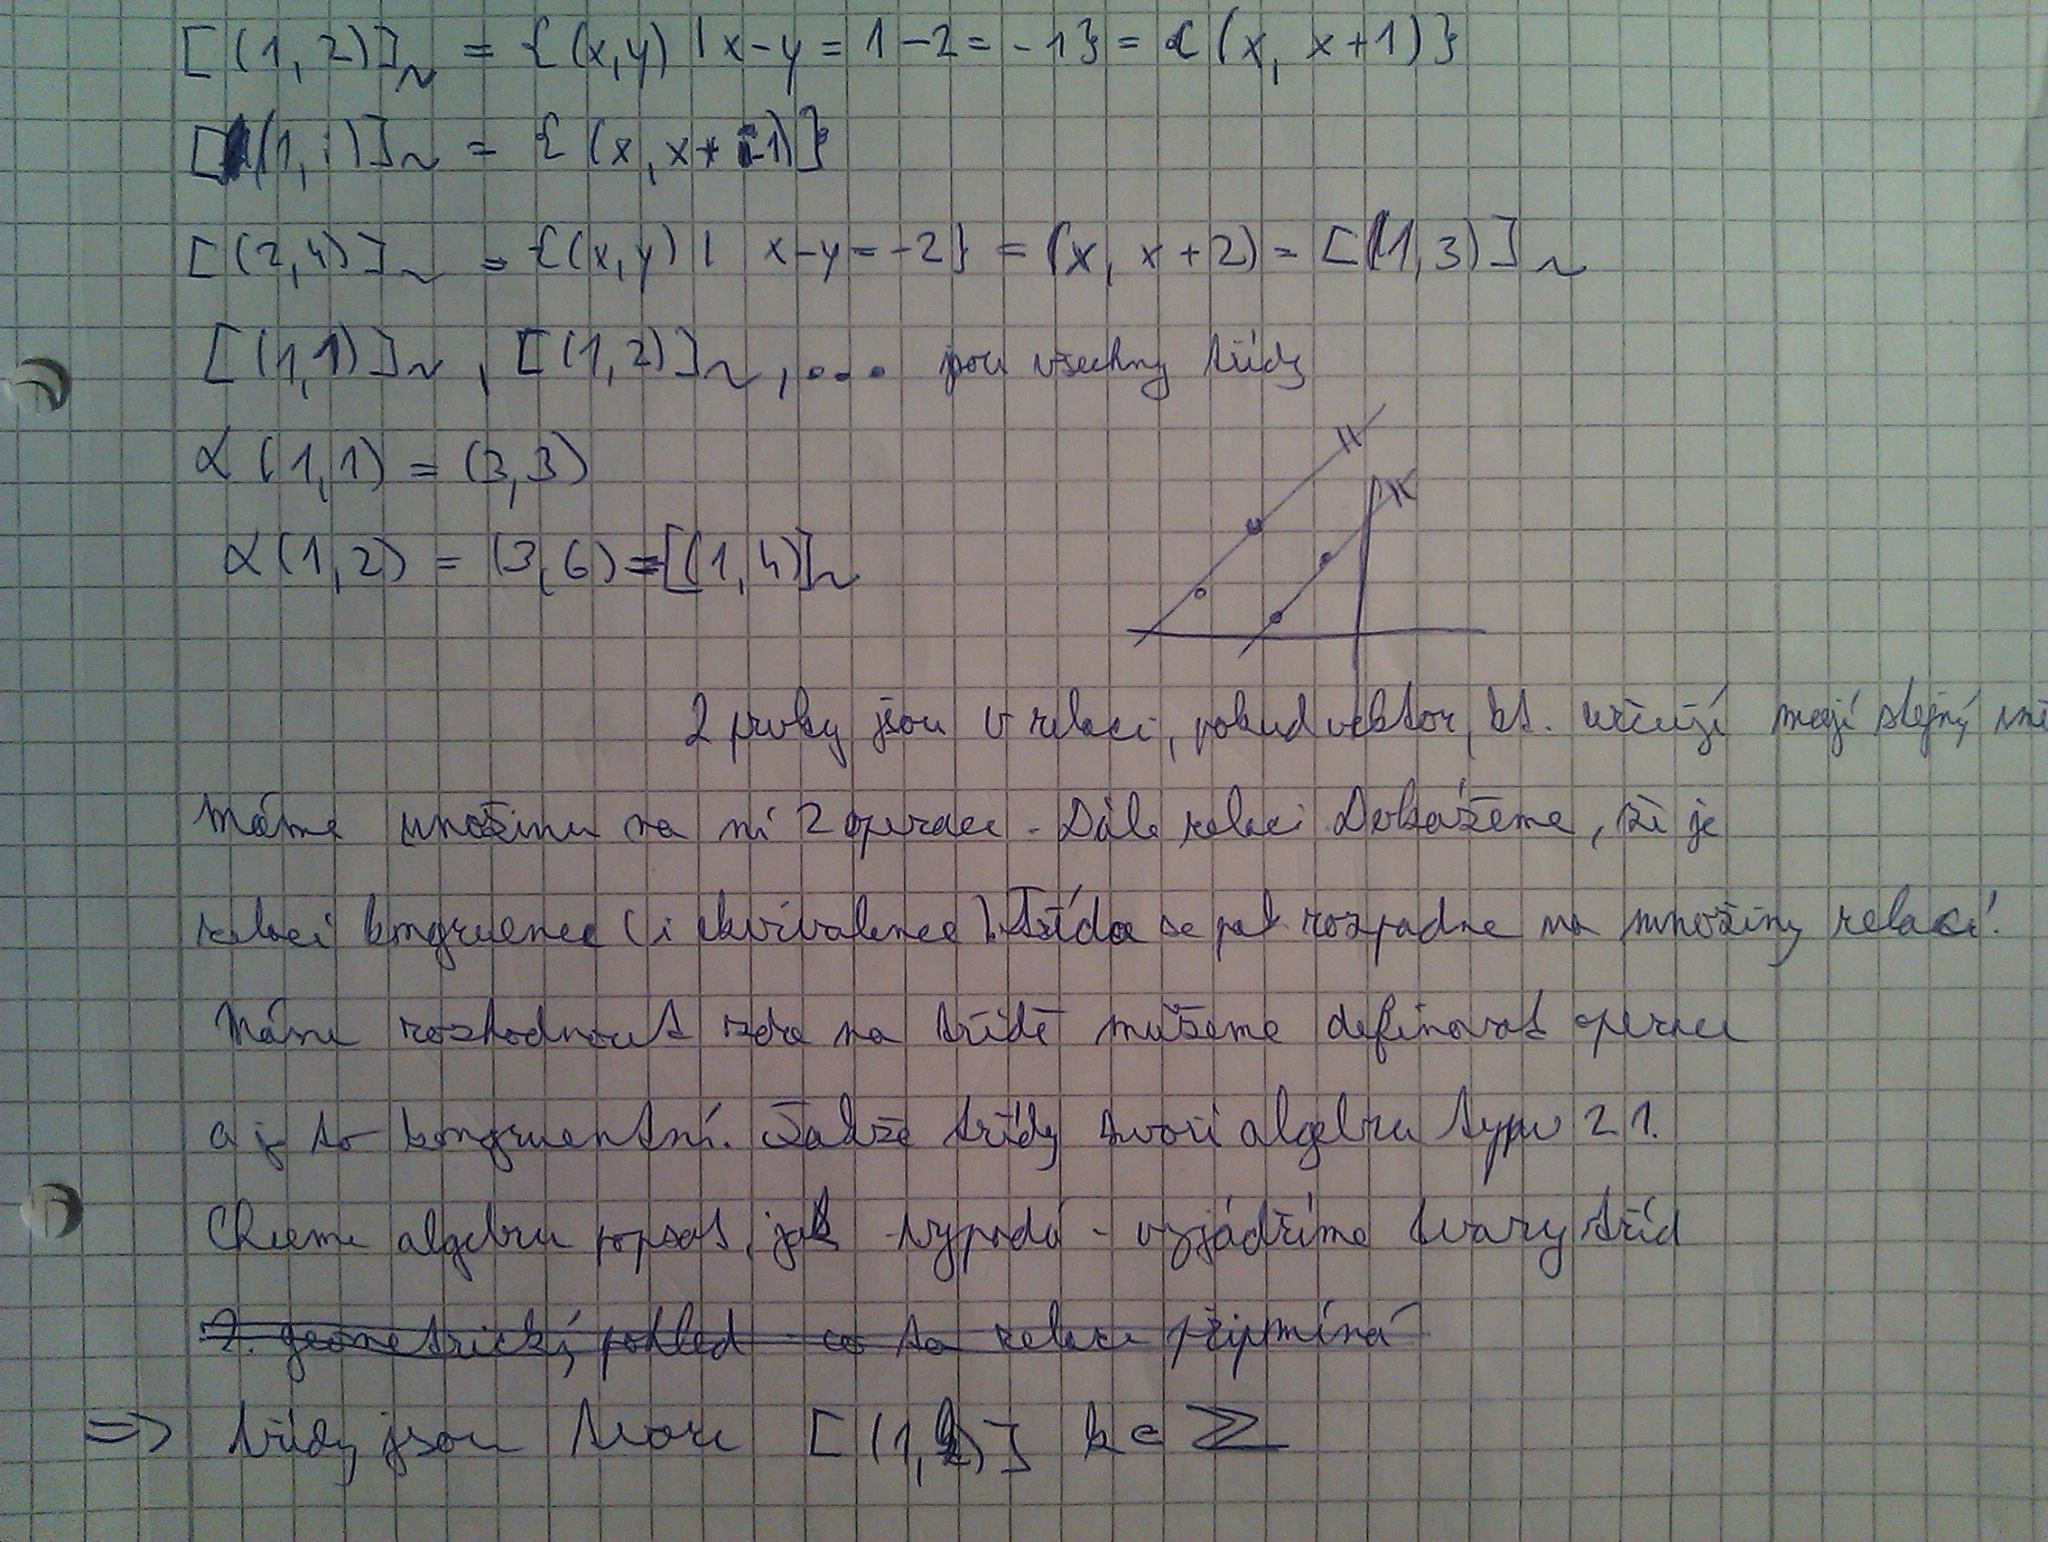 [(1,2)]~ = {(x,y) | x-y = 1-2 = -1} = {(x, x+1)}
[(1,i)]~ = {(x, x+i-1)}
[(2,4)]~ = {(x,y) | x-y = -2} = (x, x+2) = [(1,3)]~
[(1,1)]~, [(1,2)]~, ... jsou všechny třídy
α(1,1) = (3,3)
α(1,2) = (3,6) = [(1,4)]~
2 prvky jsou v relaci, pokud vektor, kt. určují mají stejný
Máme množinu na ní 2 operace - Dále relaci Dokážeme, že je
relací kongruence (i ekvivalence). Třída se pak rozpadne na množiny relací.
Máme rozhodnout zda na třídě můžeme definovat operace
a je to kongruentní. Takže třídy tvoří algebru typu 2 1.
Chceme algebru popsat, jak vypadá - vyjádříme tvary tříd
?. geometrický pohled - co ta relace připmíná
=> třídy jsou tvaru [(1,k)] k ∈ Z